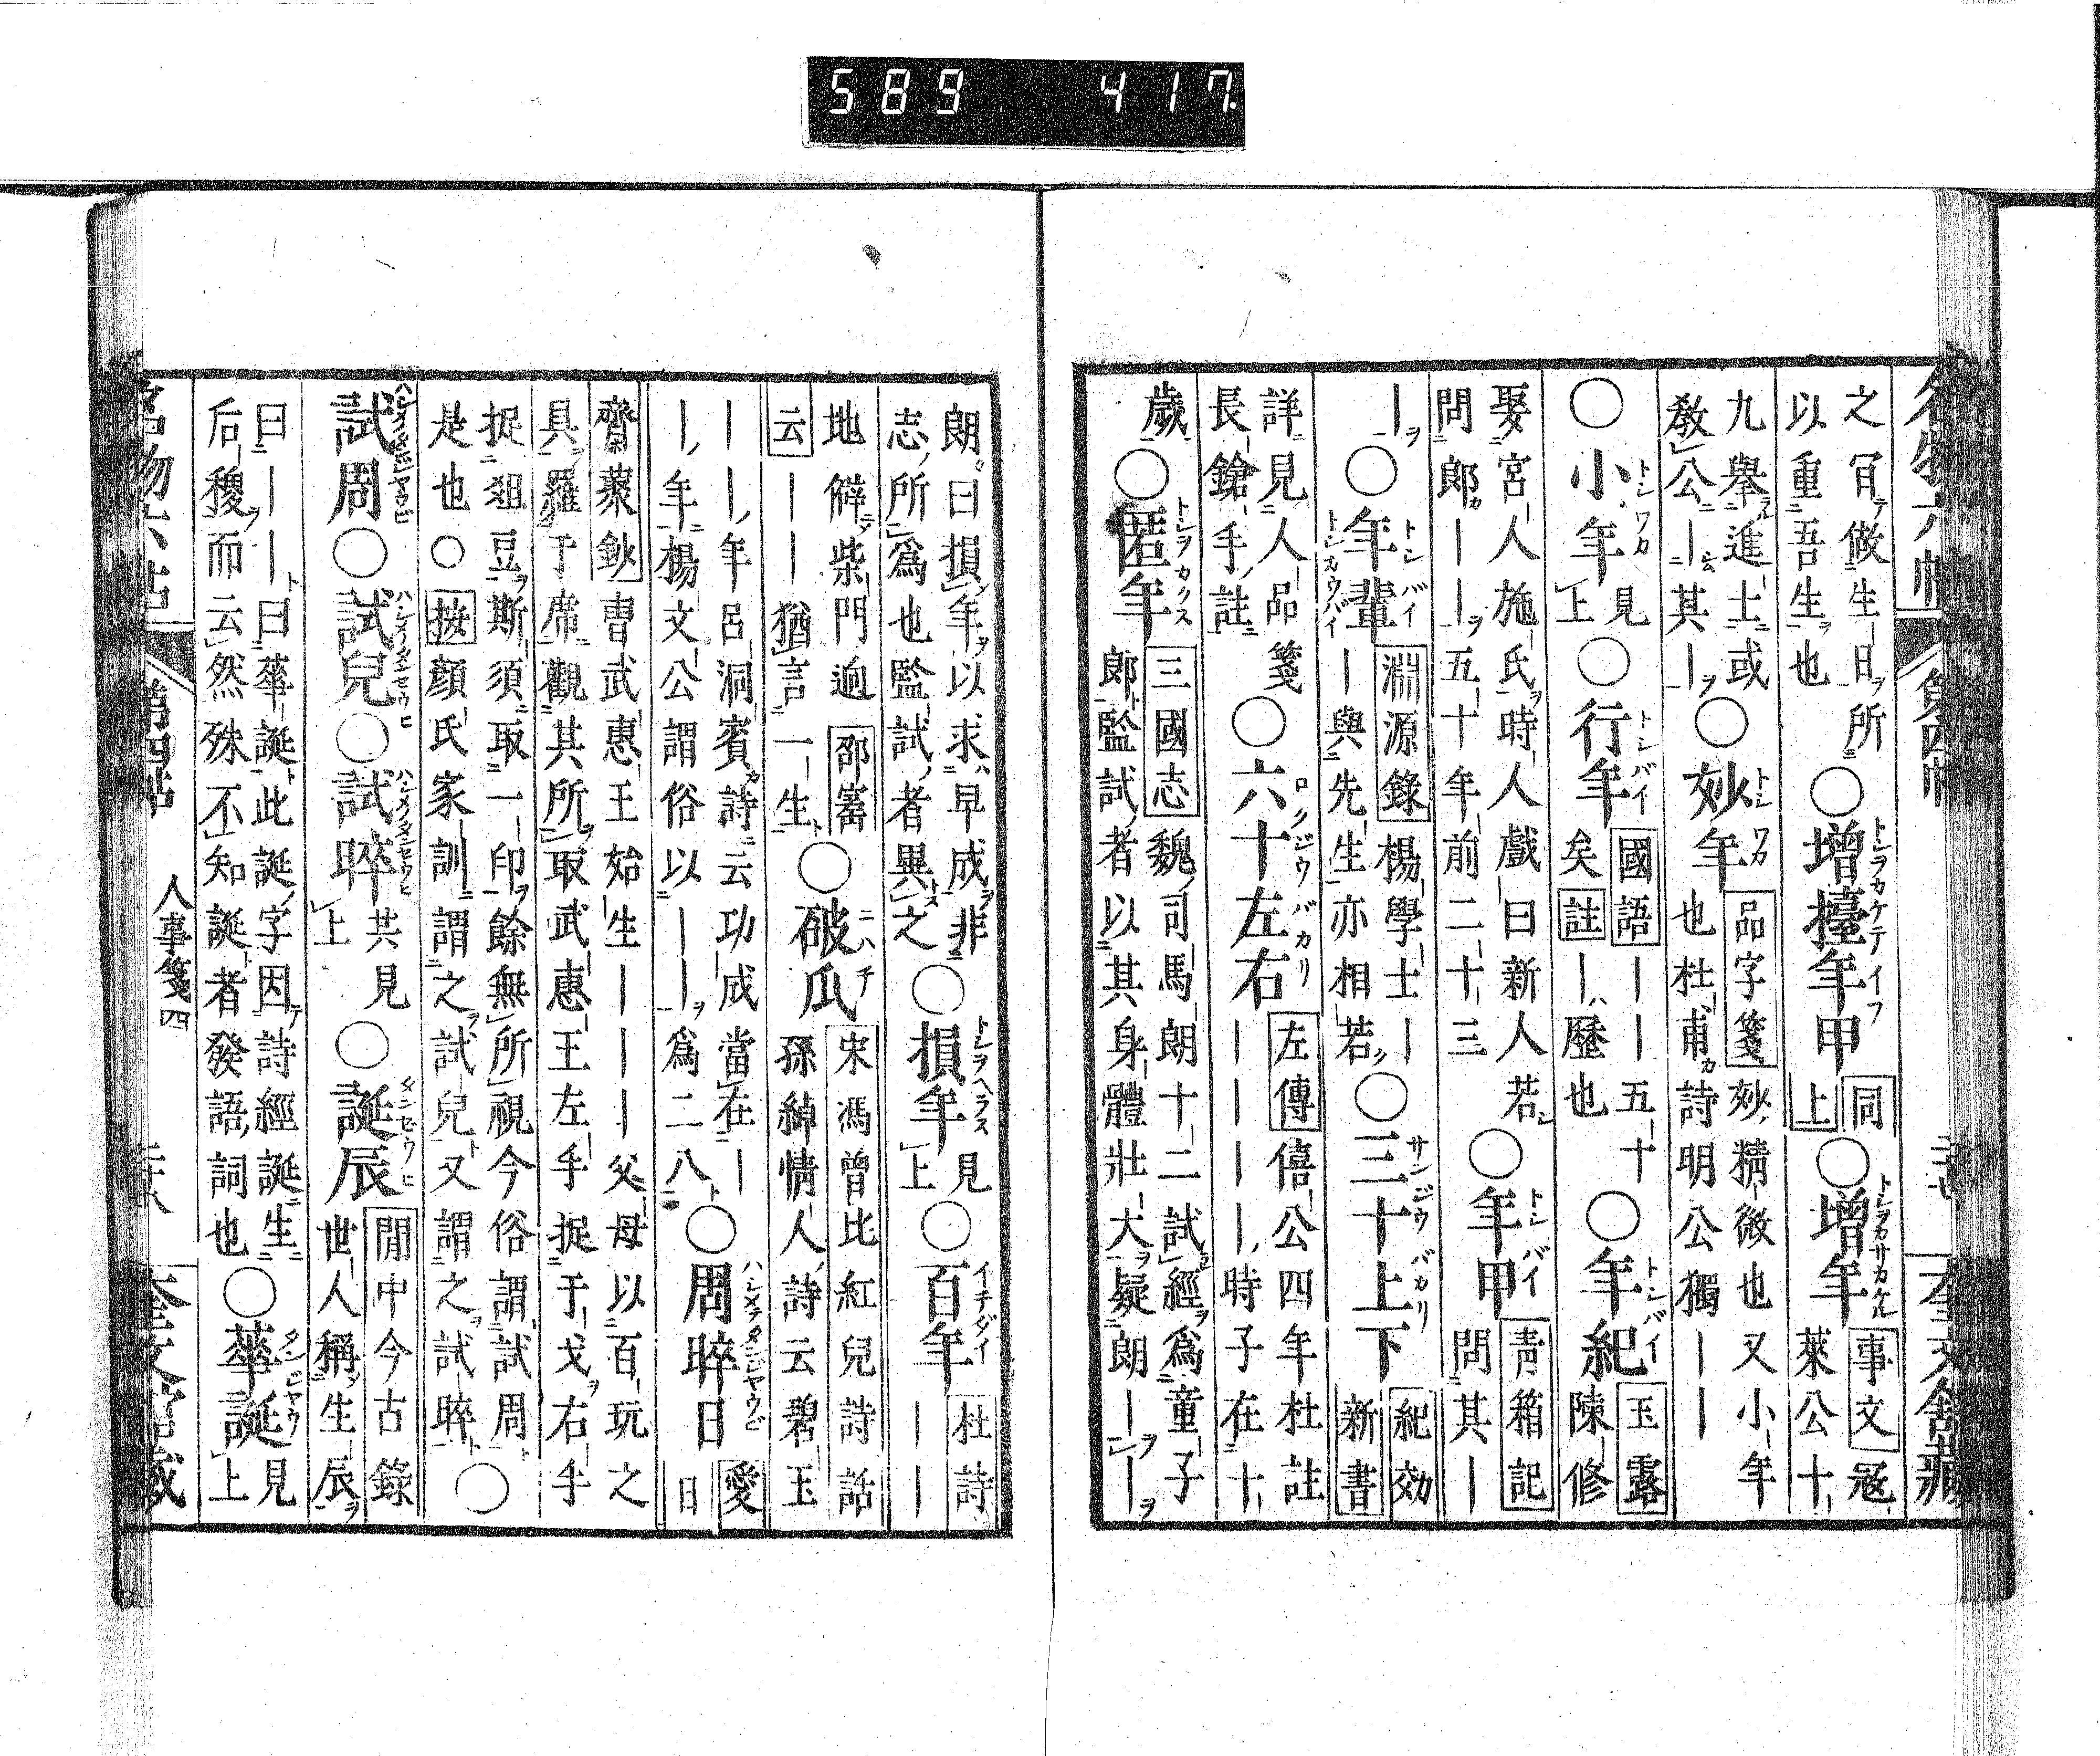 589 417.
名物六帖 第四帖 奎文館藏
之肎做生日所以重吾生也○增擡年甲同上○增年事文冦萊公十
九舉進士或教公一其一○妙年品字箋妙精微也又小年也杜甫詩明公獨――
○小年見上○行年國語――五十矣註―歷也○年紀玉露陳修
娶宮人施氏時人戲曰新人若問郎――五十年前二十三○年甲靑箱記問其―
―○年輩淵源錄楊學士――與先生亦相若○三十上下紀効新書
詳見人品箋長鎗手註○六十左右左傳僖公四年杜註――――時子在十
歲○匿年三國志魏司馬朗十二試經爲童子郎監試者以其身體壯大疑朗――
朗曰損年以求早成非志所爲也監試者異之○損年見上○百年杜詩――
地僻柴門逈邵寚云――猶言一生○破瓜宋馮曾比紅兒詩話孫綽情人詩云碧玉
――年呂洞賓詩云功成當在――年楊文公謂俗以――爲二八○周晬日愛日
齋藂鈔曹武惠王始生―――父母以百玩之具羅于席觀其所取武惠王左手捉于戈右手
捉俎豆斯須取一印餘無所視今俗謂試周是也○按顔氏家訓謂之試兒又謂之試晬○
試周○試兒○試晬共見上○誕辰閒中今古錄世人稱生辰
曰――曰華誕此誕字因詩經誕生后稷而云然殊不知誕者發語詞也○華誕見上
名物六帖 第四帖 人事箋四 二十八 奎文館藏